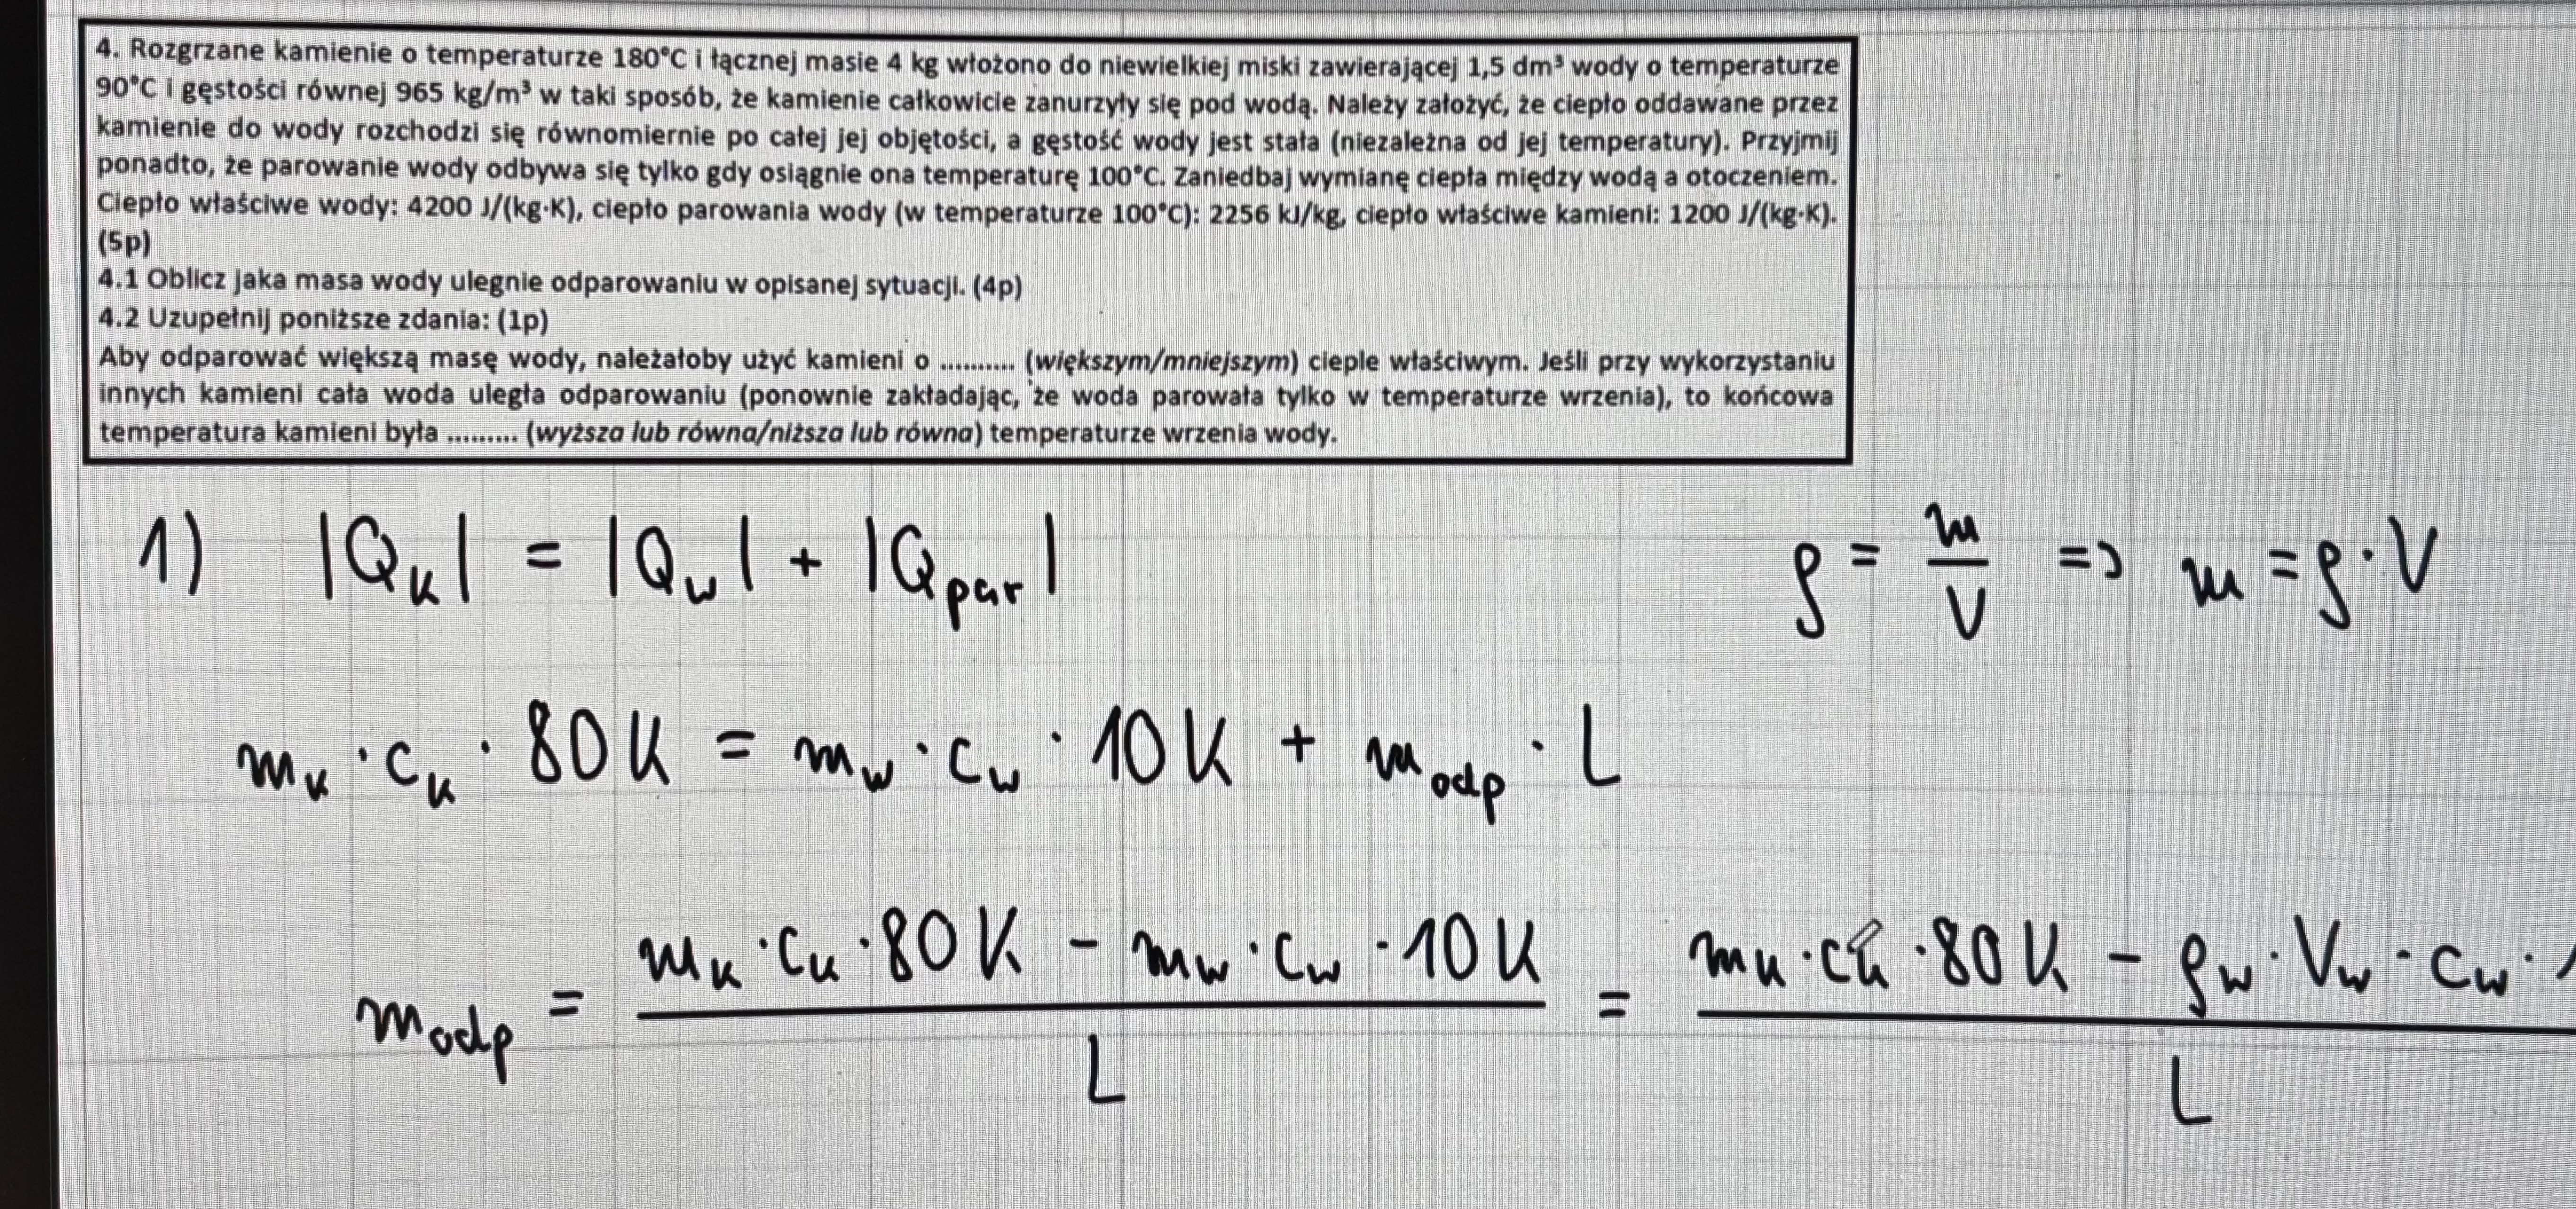 4. Rozgrzane kamienie o temperaturze 180°C i łącznej masie 4 kg włożono do niewielkiej miski zawierającej 1,5 dm³ wody o temperaturze
90°C i gęstości równej 965 kg/m³ w taki sposób, że kamienie całkowicie zanurzyły się pod wodą. Należy założyć, że ciepło oddawane przez
kamienie do wody rozchodzi się równomiernie po całej jej objętości, a gęstość wody jest stała (niezależna od jej temperatury). Przyjmij
ponadto, że parowanie wody odbywa się tylko gdy osiągnie ona temperaturę 100°C. Zaniedbaj wymianę ciepła między wodą a otoczeniem.
Ciepło właściwe wody: 4200 J/(kg·K), ciepło parowania wody (w temperaturze 100°C): 2256 kJ/kg, ciepło właściwe kamieni: 1200 J/(kg·K).
(5p)
4.1 Oblicz jaka masa wody ulegnie odparowaniu w opisanej sytuacji. (4p)
4.2 Uzupełnij poniższe zdania: (1p)
Aby odparować większą masę wody, należałoby użyć kamieni o .......... (większym/mniejszym) cieple właściwym. Jeśli przy wykorzystaniu
innych kamieni cała woda uległa odparowaniu (ponownie zakładając, że woda parowała tylko w temperaturze wrzenia), to końcowa
temperatura kamieni była ......... (wyższa lub równa/niższa lub równa) temperaturze wrzenia wody.
1) |Q_k| = |Q_w| + |Q_par| ρ = m/V => m = ρ·V
m_k · c_k · 80K = m_w · c_w · 10K + m_odp · L
m_odp = (m_k · c_k · 80K - m_w · c_w · 10K)/L = (m_k · c_k · 80K - ρ_w · V_w · c_w · 1)/L